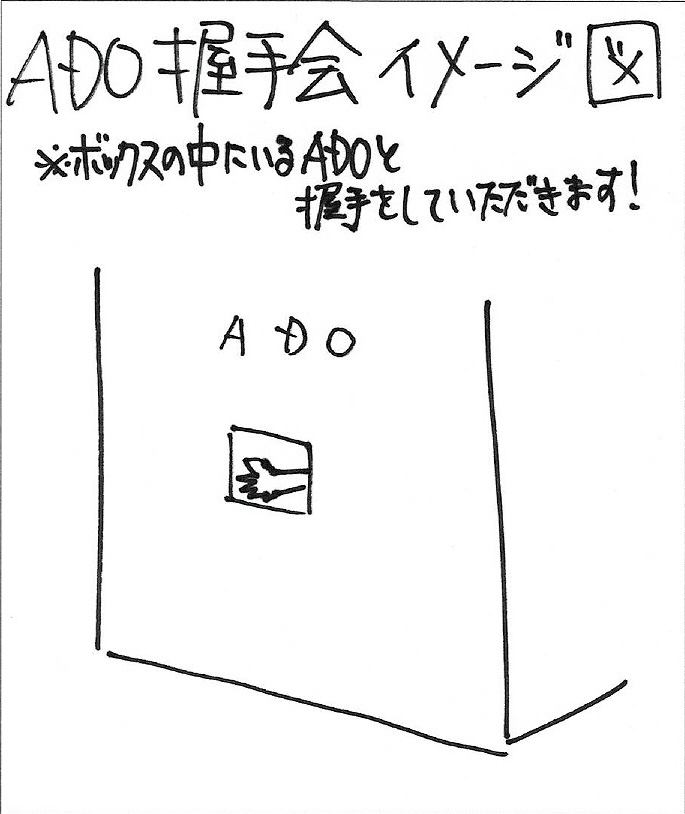 ADO握手会 イメージ図
※ボックスの中にいるADOと
握手をしていただきます！
ADO